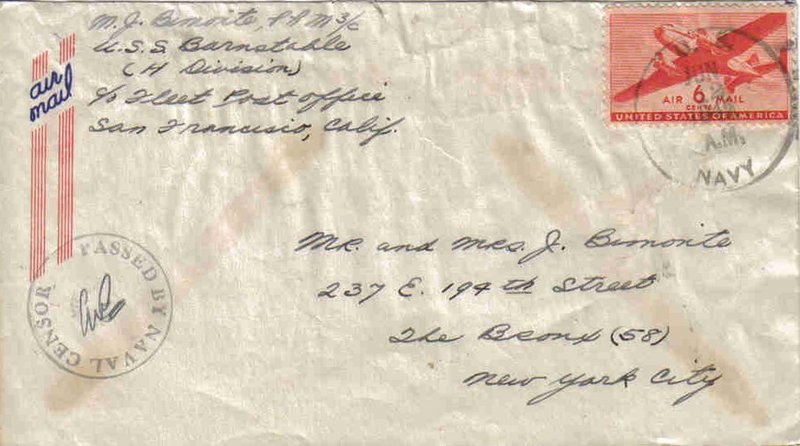 M. J. Bimonte, Ph M 3/c
U.S.S. Barnstable
(H Division)
c/o Fleet Post office
San Francisio, Calif.
air
mail
U.S.
JUN
A.M.
NAVY
AIR 6 MAIL
CENTS
UNITED STATES OF AMERICA
PASSED BY NAVAL CENSOR
Mr. and Mrs. J. Bimonte
237 E. 194th Street
The Bronx (58)
New York City